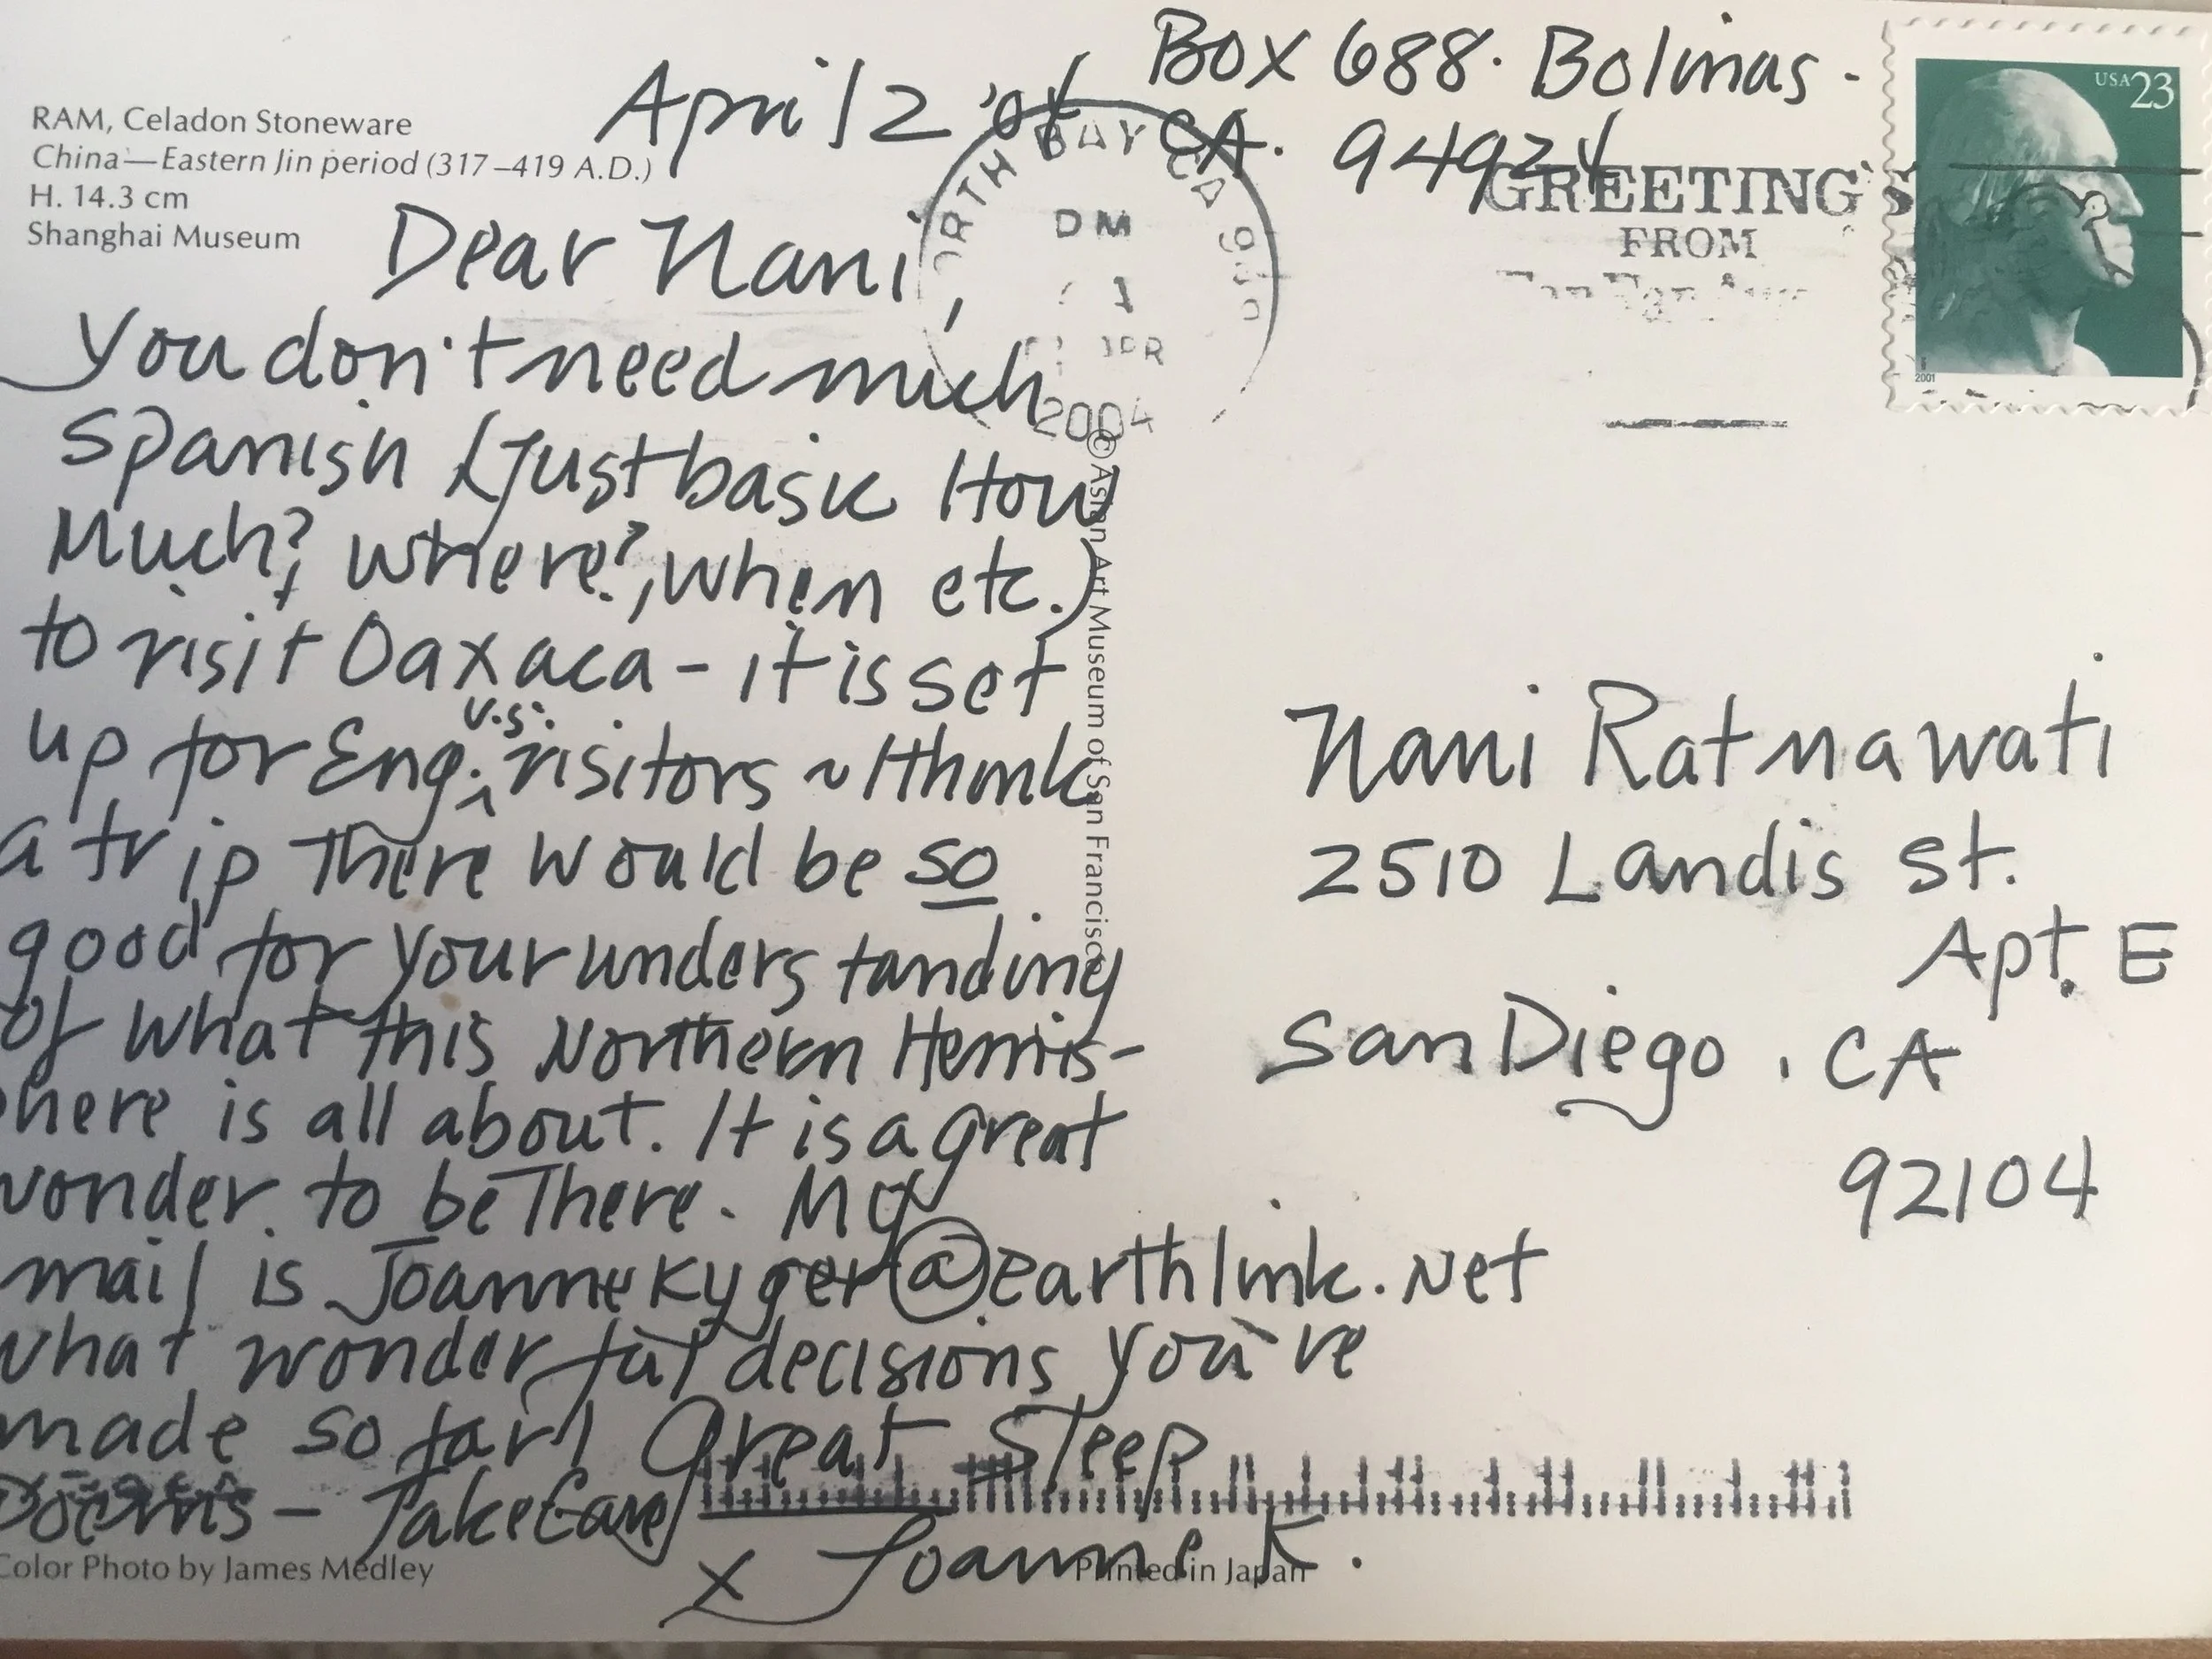 Box 688. Bolinas -
CA. 94924
April 2 '04
RAM, Celadon Stoneware
China—Eastern Jin period (317–419 A.D.)
H. 14.3 cm
Shanghai Museum
USA 23
2001
BAY CA
PM
2004
GREETINGS
FROM
Dear Nani,
You don't need much
Spanish (Just basic How
Much?, where?, when etc.)
to visit Oaxaca - it is set
up for Eng. U.S. visitors ~ I think
a trip There would be so
good for your understanding
of what this Northern Hemis-
phere is all about. It is a great
wonder to be There. My
mail is JoanneKyger@earthlink.net
what wonderful decisions you've
made so far! Great Sleep
Poems – Take Care
x Joanne K.
© Asian Art Museum of San Francisco
Nani Ratnawati
2510 Landis St.
Apt. E
San Diego, CA
92104
Color Photo by James Medley
Printed in Japan